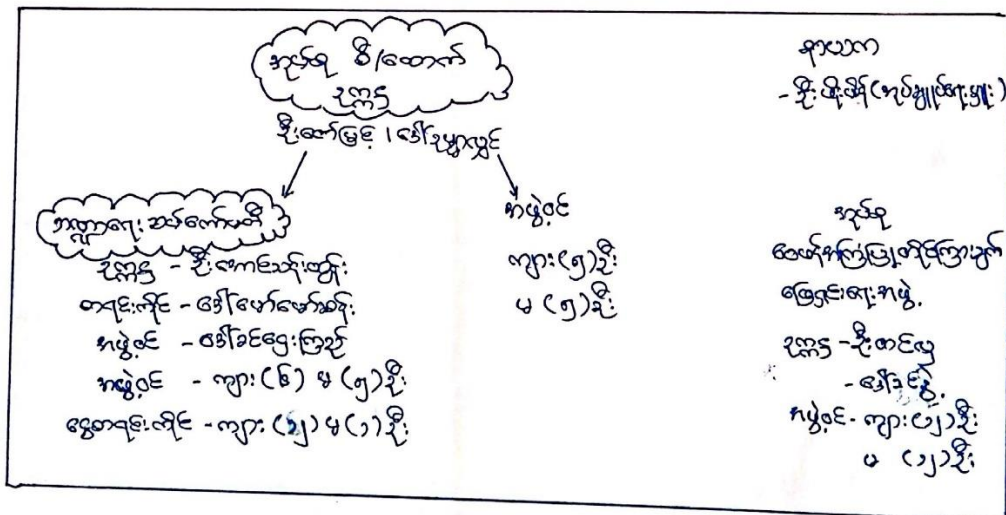 အုပ်စု စီ/ထောက်
ဥက္ကဋ္ဌ
ဦးဇော်မြင့် / ဒေါ်ဥမ္မာလွင်
ဘဏ္ဍာရေး ဆပ်ကော်မတီ
ဥက္ကဋ္ဌ - ဦးအောင်သန်းထွန်း
စာရင်းကိုင် - ဒေါ်မော်မော်ဆန်း
အဖွဲ့ဝင် - ဒေါ်ခင်ဌေးကြည်
အဖွဲ့ဝင် - ကျား (၆) မ (၅) ဦး
ငွေစာရင်းကိုင် - ကျား (၁၂) မ (၁) ဦး
အဖွဲ့ဝင်
ကျား (၅) ဦး
မ (၅) ဦး
နာယက
- ဦးစိုးစိန် (အုပ်ချုပ်ရေးမှူး)
အုပ်စု
ဝေဖန်အကြံပြုတိုင်ကြားချက်
ဖြေရှင်းရေးအဖွဲ့
ဥက္ကဋ္ဌ - ဦးတင်လှ
- ဒေါ်ခင်နွဲ့
အဖွဲ့ဝင် - ကျား (၁၂) ဦး
မ (၁၂) ဦး